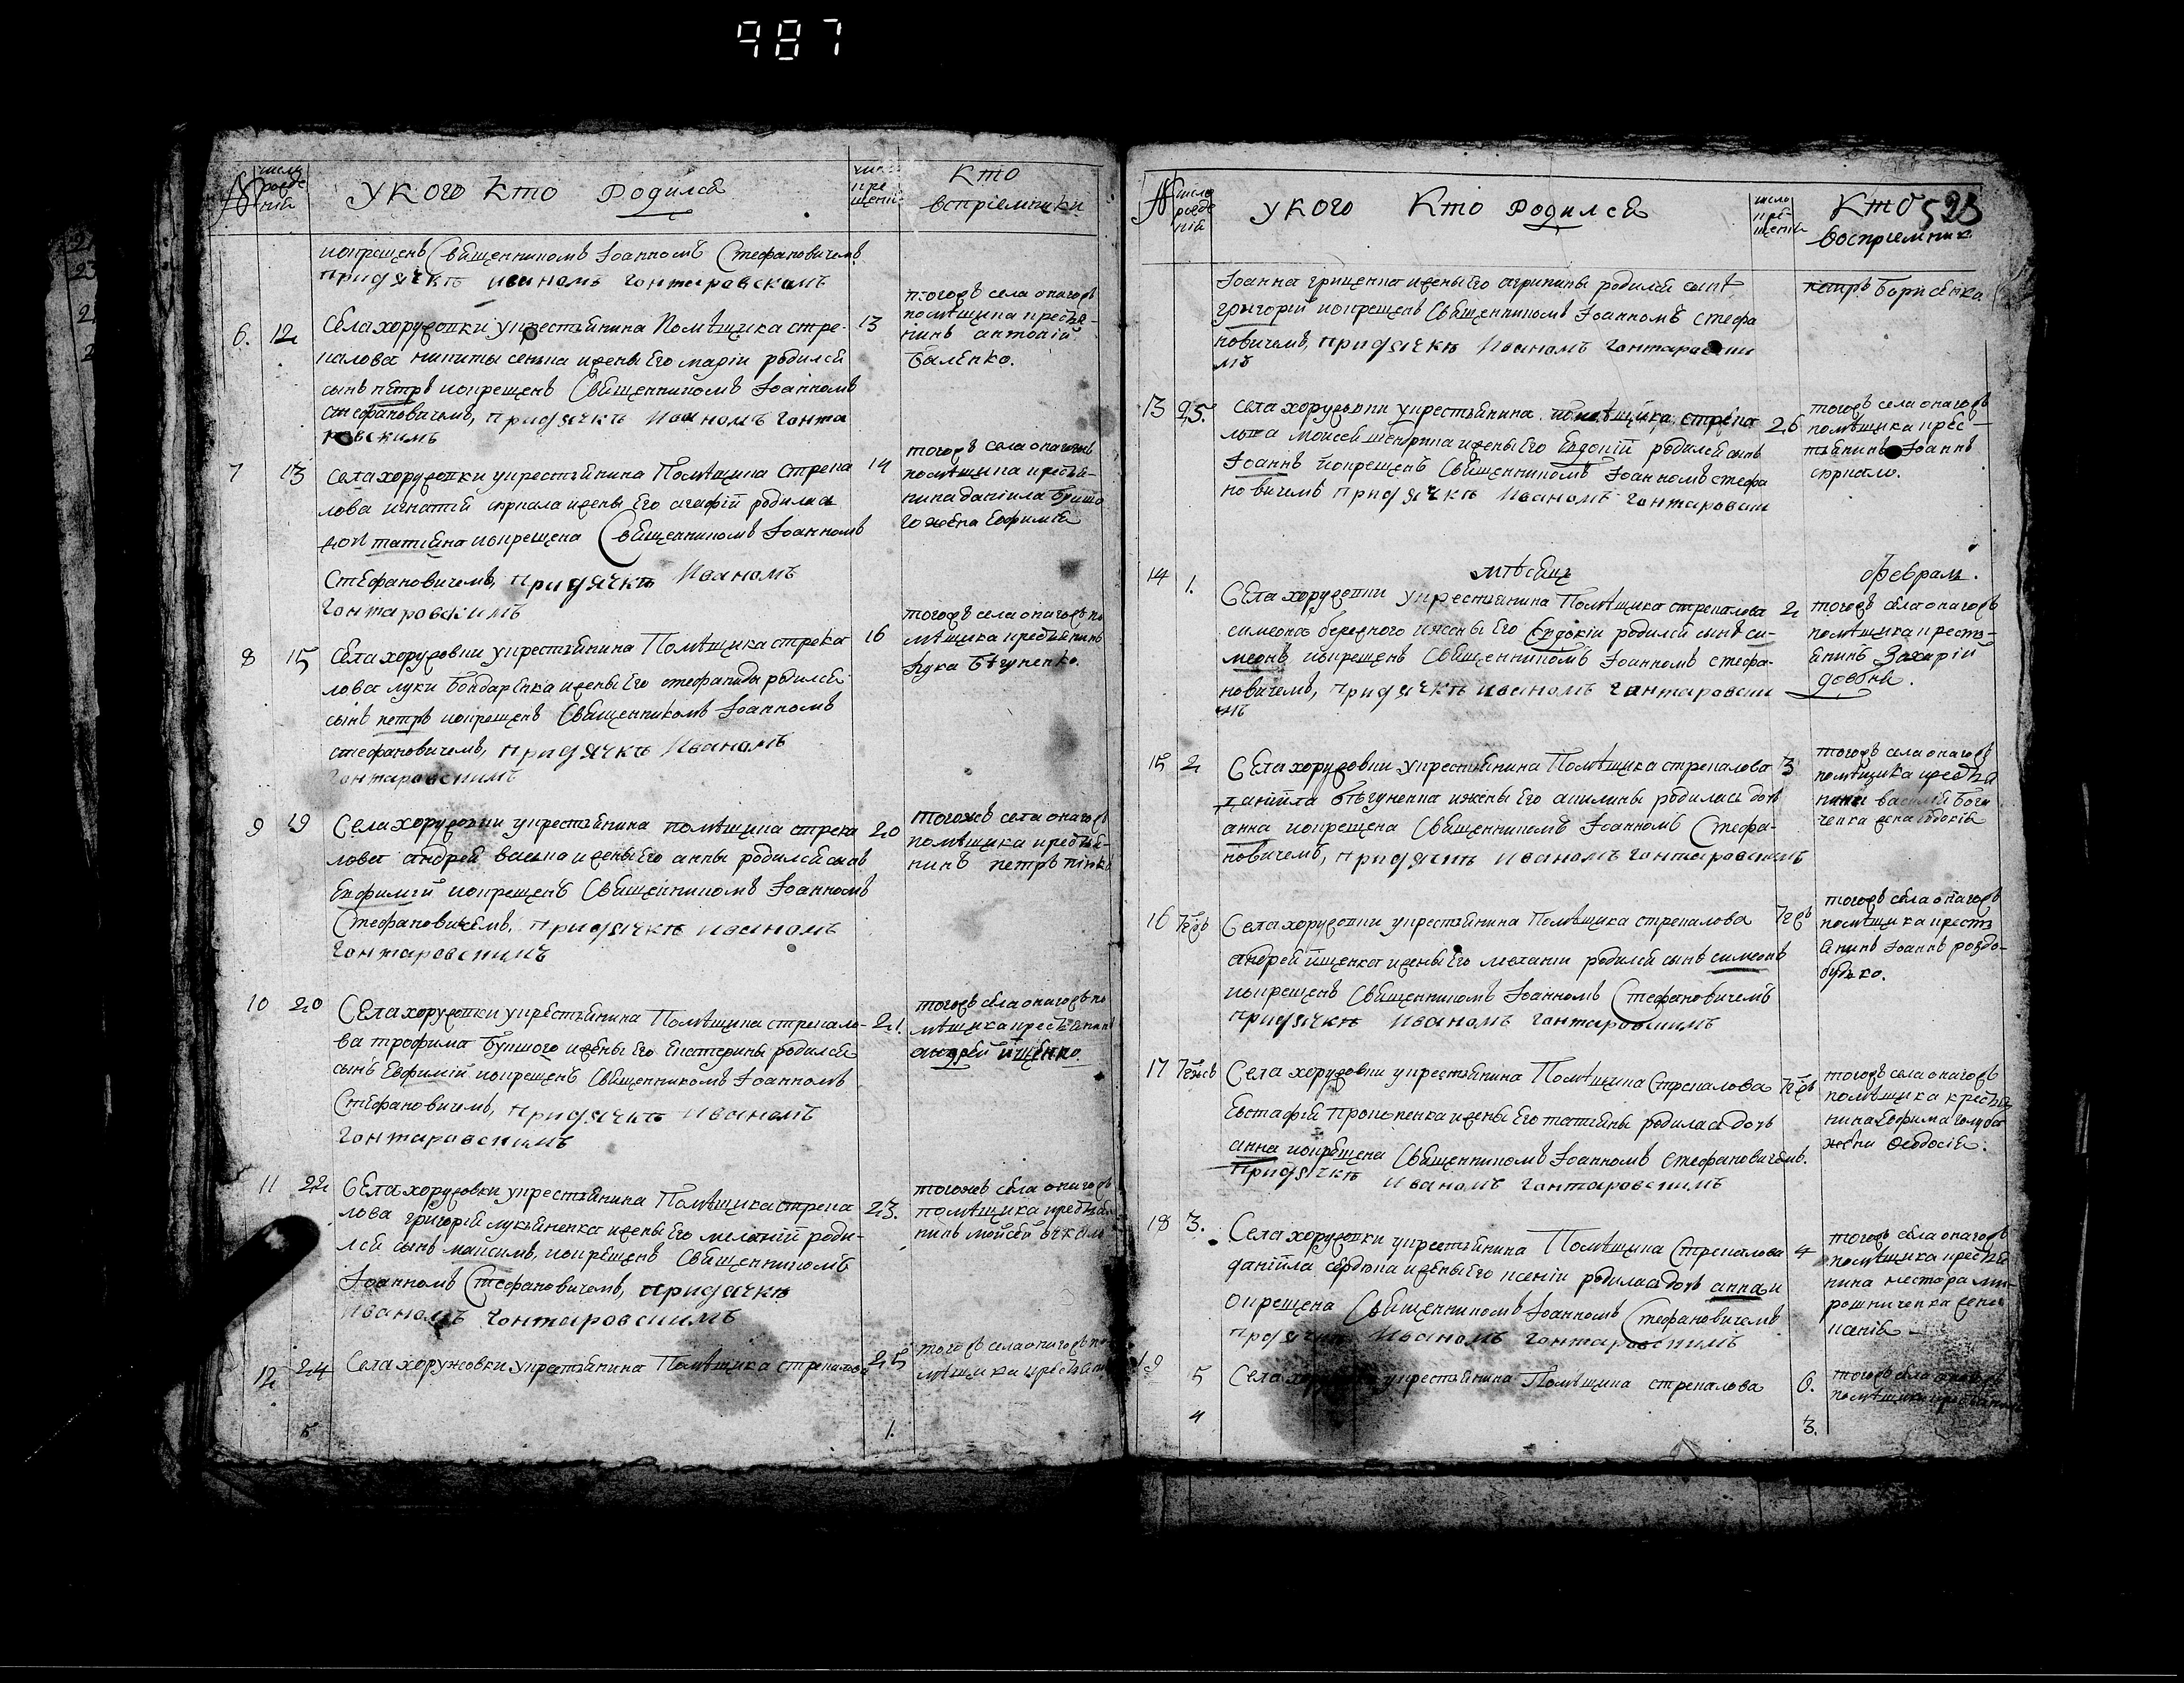 987
№
число
рожде
ній
У кого кто родился
число
кре
щенія
Кто
воспріемники
и крещенъ Священникомъ Іоанномъ Стефановичемъ
при дячкѣ Иваномъ Гонтаровскомъ
6. 12 Села хоружовки у крестьянина Помѣщика стре- 13
калова никиты сенька и жены Его маріи родился
сынъ петръ и крещенъ Священникомъ Іоанномъ
стефановичемъ, при дячкѣ Иваномъ Гонта
ровскимъ
тогожъ села онагожъ
помѣщика крестья-
нинъ антоній
баленко.
7 13 Села хоружовки у крестьянина Помѣщика Стрека 14
лова игнатій скрипала и жены Его агафій родилась
дочь татіяна и крещена Священникомъ Іоанномъ
Стефановичемъ, при дячкѣ Иваномъ
Гонтаровскимъ
тогожъ села онагожъ
помѣщика крестья-
нина даніила
жена Евфимія
8 15 Села хоружовки у крестьянина Помѣщика стрека 16
лова луки бондаренка и жены Его стефаниды родился
сынъ петръ и крещенъ Священникомъ Іоанномъ
стефановичемъ, при дячкѣ Иваномъ
Гонтаровскимъ
тогожъ села онагожъ по
мѣщика крестьянинъ
лука бѣгуненко.
9 19 Села хоружовки у крестьянина помѣщика стрека 20
лова андрей васька и жены Его анны родился сынъ
Евфимій и крещенъ Священникомъ Іоанномъ
Стефановичемъ, при дячкѣ Иваномъ
Гонтаровскимъ
тогожъ села онагожъ
помѣщика крестья-
нинъ петръ
10 20 Села хоружовки у крестьянина Помѣщика стрекало- 21.
ва трофима и жены Его Екатерины родился
сынъ Евфимій и крещенъ Священникомъ Іоанномъ
Стефановичемъ, при дячкѣ Иваномъ
Гонтаровскимъ
тогожъ села онагожъ по
мѣщика крестьянинъ
андрей ищенко.
11 22 Села хоружовки у крестьянина Помѣщика стрека 23.
лова григорій лукьяненка и жены Его меланій роди-
лся сынъ максимъ, и крещенъ Священникомъ
Іоанномъ Стефановичемъ, при дячкѣ
Иваномъ Гонтаровскимъ
тогожъ села онагожъ
помѣщика крестья-
нинъ мойсей
12 24 Села хоружовки у крестьянина Помѣщика стрекалова 25
тогожъ села онагожъ по
мѣщика крестьянинъ
5 1.
№
число
рожде
ній
У кого Кто родился
число
кре-
щеній
Кто 523
воспріемник
Іоанна грищенка и жены Его агрипины родился сынъ
григорій и крещенъ Священникомъ Іоанномъ стефа
новичемъ, при дячкѣ Иваномъ Гонтаровски
мъ
петръ борисенко.
13 25. Села хоружовки у крестьянина помѣщика стрека 26
лова Моисей и жены Его Евдокій родился сынъ
Іоаннъ и крещенъ Священникомъ Іоанномъ стефа
новичемъ при дячкѣ Иваномъ Гонтаровски
тогожъ села онагожъ
помѣщика крес-
тьянинъ Іоаннъ
мѣсяцъ февраль.
14 1. Села хоружовки у крестьянина Помѣщика стрекалова 2
симеона бережного и жены Его Евдокіи родился сынъ си-
меонъ и крещенъ Священникомъ Іоанномъ стефа-
новичемъ, при дячкѣ Иваномъ Гонтаровски
мъ
тогожъ села онагожъ
помѣщика кресть-
янинъ Захарій
довбня.
15 2 Села хоружовки у крестьянина Помѣщика стрекалова 3
даніила бѣгуненка и жены Его акилины родилась дочь
анна и крещена Священникомъ Іоанномъ Стефа-
новичемъ, при дячкѣ Иваномъ Гонтаровскимъ
тогожъ села онагожъ
помѣщика крестья
нина василій
жена
16 Села хоружовки у крестьянина Помѣщика стрекалова
андрей ищенка и жены Его меланіи родился сынъ симеонъ
и крещенъ Священникомъ Іоанномъ Стефановичемъ
при дячкѣ Иваномъ Гонтаровскимъ
тогожъ села онагожъ
помѣщика кресть
янинъ Іоаннъ роздо-
будько.
17 Села хоружовки у крестьянина Помѣщика Стрекалова
Евстафій прокопенка и жены Его татіяны родилась дочь
анна и крещена Священникомъ Іоанномъ Стефановичемъ.
при дячкѣ Иваномъ Гонтаровскимъ
тогожъ села онагожъ
помѣщика крестья
нина Ефима
жена Феодосія.
18 3. Села хоружовки у крестьянина Помѣщика Стрекалова 4
даніила сердюка и жены Его ксеніи родилась дочь анна и
окрещена Священникомъ Іоанномъ Стефановичемъ
при дячкѣ Иваномъ Гонтаровскимъ
тогожъ села онагожъ
помѣщика крестья
нина нестора ми-
рошниченка жена
ксенія
19 5 Села хоружовки у крестьянина Помѣщика стрекалова 6.
тогожъ села онагожъ
помѣщика крестьянинъ
4 3.